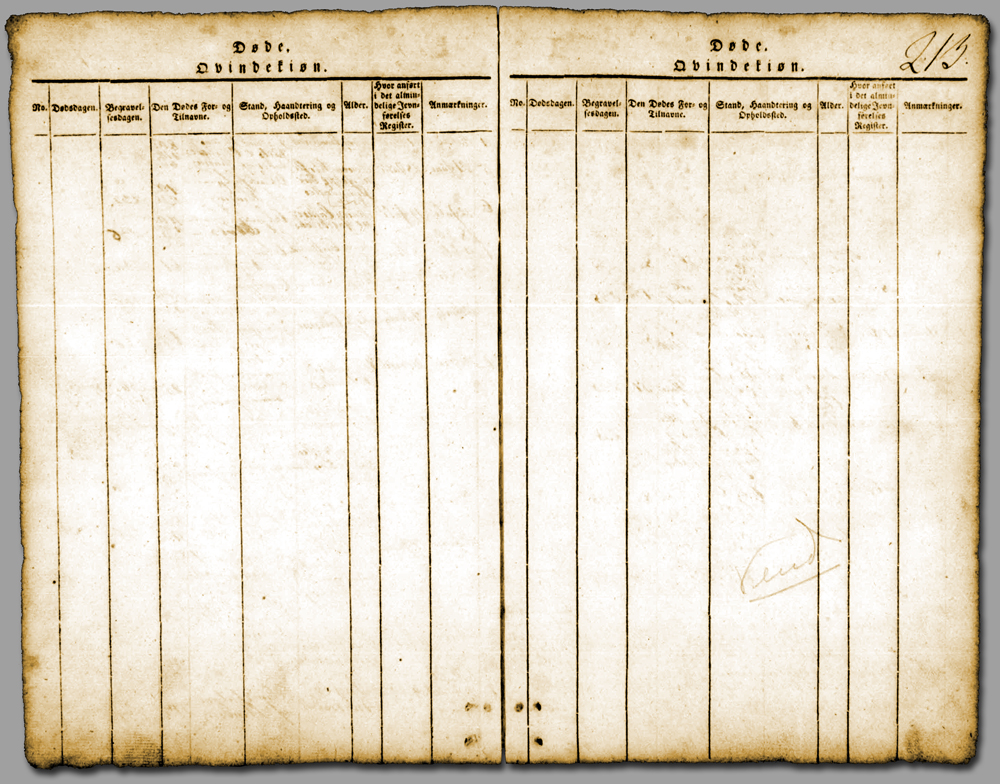 Døde.
Qvindekiøn.
No. Dødsdagen. Begravel-
sesdagen. Den Dødes For- og
Tilnavne. Stand, Haandtering og
Opholdssted. Alder. Hvor anført
i det almin-
delige Jevn-
førelses
Register. Anmærkninger.
Døde.
Qvindekiøn.
213.
No. Dødsdagen. Begravel-
sesdagen. Den Dødes For- og
Tilnavne. Stand, Haandtering og
Opholdssted. Alder. Hvor anført
i det almin-
delige Jevn-
førelses
Register. Anmærkninger.